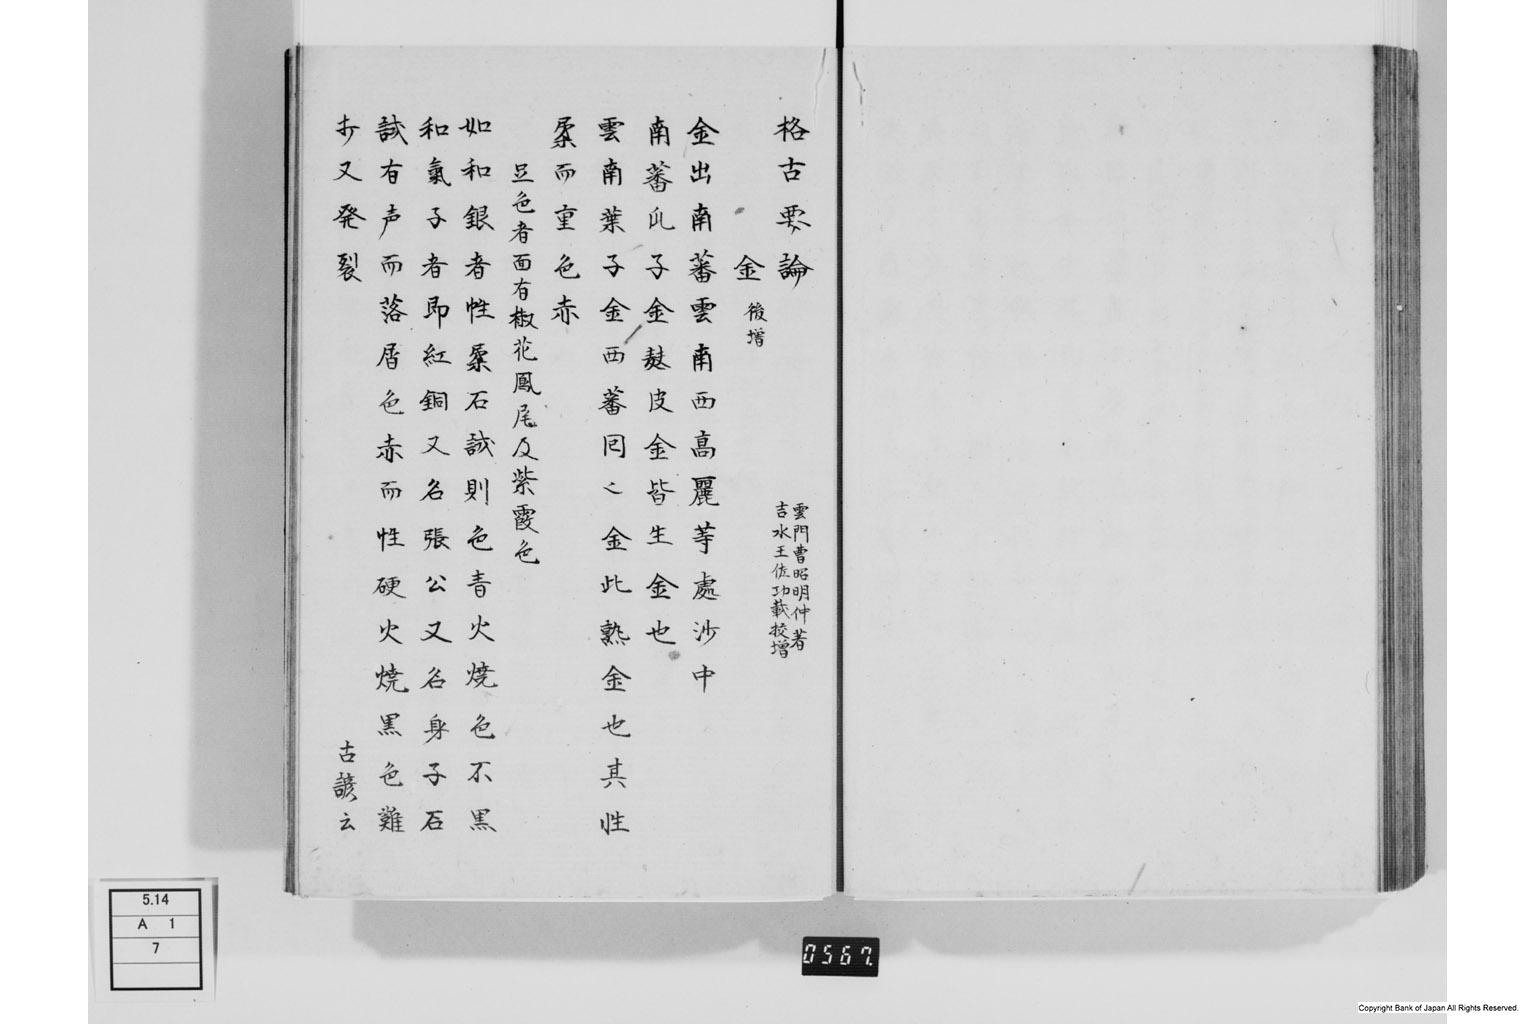 格古要論
雲門曹昭明仲著
吉水王佐功載挍增
金 後増
金出南蕃雲南西高麗等處沙中
南蕃瓜子金麩皮金皆生金也
雲南葉子金西蕃回〻金此熟金也其性
柔而重色赤
足色者面有椒花鳳尾及紫霞色
如和銀者性柔石試則色青火燒色不黒
和氣子者即紅銅又名張公又名身子石
試有声而落屑色赤而性硬火燒黒色難
又発裂
古諺云
5.14
A 1
7
0567
Copyright Bank of Japan All Rights Reserved.